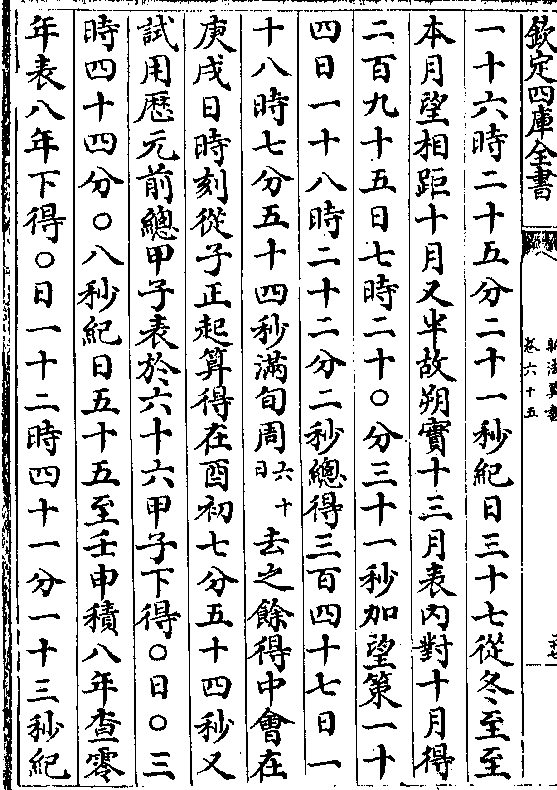 欽定四庫全書
卷六十五
一十六時二十五分二十一秒紀日三十七從冬至至
本月望相距十月又半故朔實十三月表内對十月得
二百九十五日七時二十〇分三十一秒加望第一十
四日一十八時二十二分二秒總得三百四十七日一
十八時七分五十四秒滿旬周六十日去之餘得中會在
庚戌日時刻從子正起算得在酉初七分五十四秒又
試用歴元前總甲子表於六十六甲子下得〇日〇三
時四十四分〇八秒紀日五十五至壬申積八年查零
年表八年下得〇日一十二時四十一分一十三秒紀